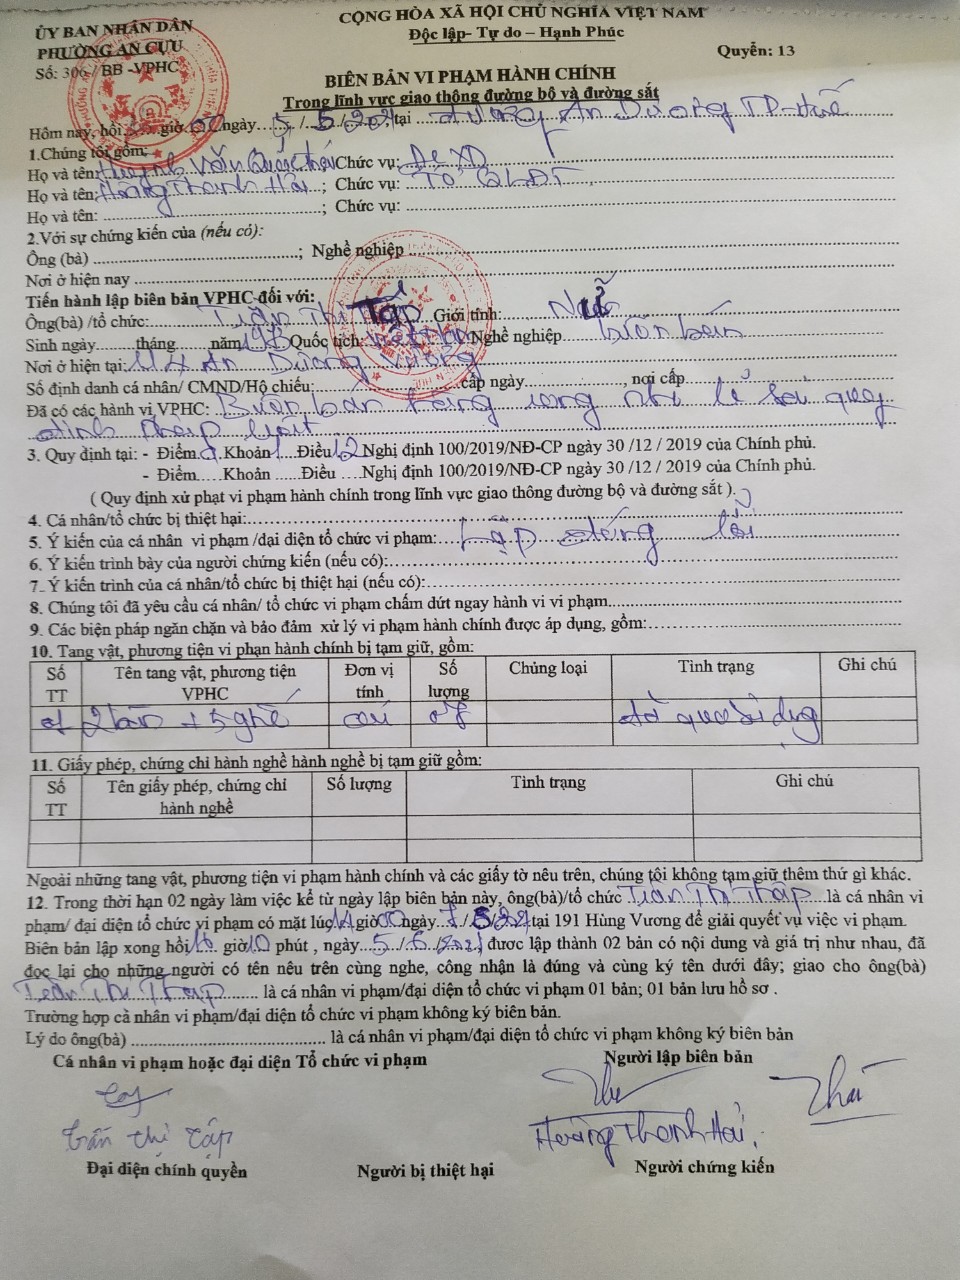 ỦY BAN NHÂN DÂN
PHƯỜNG AN CỰU
Số: 306 / BB -VPHC
CỘNG HÒA XÃ HỘI CHỦ NGHĨA VIỆT NAM
Độc lập- Tự do – Hạnh Phúc
Quyển: 13
BIÊN BẢN VI PHẠM HÀNH CHÍNH
Trong lĩnh vực giao thông đường bộ và đường sắt
Hôm nay, hồi giờ 00 ngày 5 / 5 / 2021, tại đường An Dương TP-Huế
1.Chúng tôi gồm:
Họ và tên: Huỳnh Văn Quốc Thái Chức vụ:
Họ và tên: Hoàng Thanh Hải ; Chức vụ: Tổ QLĐT
Họ và tên: ; Chức vụ:
2.Với sự chứng kiến của (nếu có):
Ông (bà) ; Nghề nghiệp
Nơi ở hiện nay
Tiến hành lập biên bản VPHC đối với:
Ông(bà) /tổ chức: Trần Thị Tấp Giới tính: Nữ
Sinh ngày tháng năm Quốc tịch: Việt Nam Nghề nghiệp buôn bán
Nơi ở hiện tại: An Dương Vương
Số định danh cá nhân/ CMND/Hộ chiếu: cấp ngày , nơi cấp
Đã có các hành vi VPHC: Buôn bán hàng rong nhỏ lẻ sai quy
định pháp luật
3. Quy định tại: - Điểm a Khoản 1 Điều 12 Nghị định 100/2019/NĐ-CP ngày 30 /12 / 2019 của Chính phủ.
- Điểm Khoản Điều Nghị định 100/2019/NĐ-CP ngày 30 /12 / 2019 của Chính phủ.
( Quy định xử phạt vi phạm hành chính trong lĩnh vực giao thông đường bộ và đường sắt ).
4. Cá nhân/tổ chức bị thiệt hại:
5. Ý kiến của cá nhân vi phạm /đại diện tổ chức vi phạm: Lập đúng lỗi
6. Ý kiến trình bày của người chứng kiến (nếu có):
7. Ý kiến trình của cá nhân/tổ chức bị thiệt hại (nếu có):
8. Chúng tôi đã yêu cầu cá nhân/ tổ chức vi phạm chấm dứt ngay hành vi vi phạm
9. Các biện pháp ngăn chặn và bảo đảm xử lý vi phạm hành chính được áp dụng, gồm:
10. Tang vật, phương tiện vi phạn hành chính bị tạm giữ, gồm:
Số TT Tên tang vật, phương tiện VPHC Đơn vị tính Số lượng Chủng loại Tình trạng Ghi chú
01 2 bàn + 5 ghế cái 07 đã qua sử dụng
11. Giấy phép, chứng chỉ hành nghề hành nghề bị tạm giữ gồm:
Số TT Tên giấy phép, chứng chỉ hành nghề Số lượng Tình trạng Ghi chú
Ngoài những tang vật, phương tiện vi phạm hành chính và các giấy tờ nêu trên, chúng tôi không tạm giữ thêm thứ gì khác.
12. Trong thời hạn 02 ngày làm việc kể từ ngày lập biên bản này, ông(bà)/tổ chức Trần Thị Tháp là cá nhân vi
phạm/ đại diện tổ chức vi phạm có mặt lúc 14 giờ 00 ngày 7 / 5 / 2021 tại 191 Hùng Vương để giải quyết vụ việc vi phạm.
Biên bản lập xong hồi giờ 10 phút , ngày 5 / 5 / 2021 được lập thành 02 bản có nội dung và giá trị như nhau, đã
đọc lại cho những người có tên nêu trên cùng nghe, công nhận là đúng và cùng ký tên dưới đây; giao cho ông(bà)
Trần Thị Tháp là cá nhân vi phạm/đại diện tổ chức vi phạm 01 bản; 01 bản lưu hồ sơ .
Trường hợp cả nhân vi phạm/đại diện tổ chức vi phạm không ký biên bản.
Lý do ông(bà) là cá nhân vi phạm/đại diện tổ chức vi phạm không ký biên bản
Cá nhân vi phạm hoặc đại diện Tổ chức vi phạm
Người lập biên bản
Trần thị Tấp
Hoàng Thanh Hải
Thái
Đại diện chính quyền
Người bị thiệt hại
Người chứng kiến